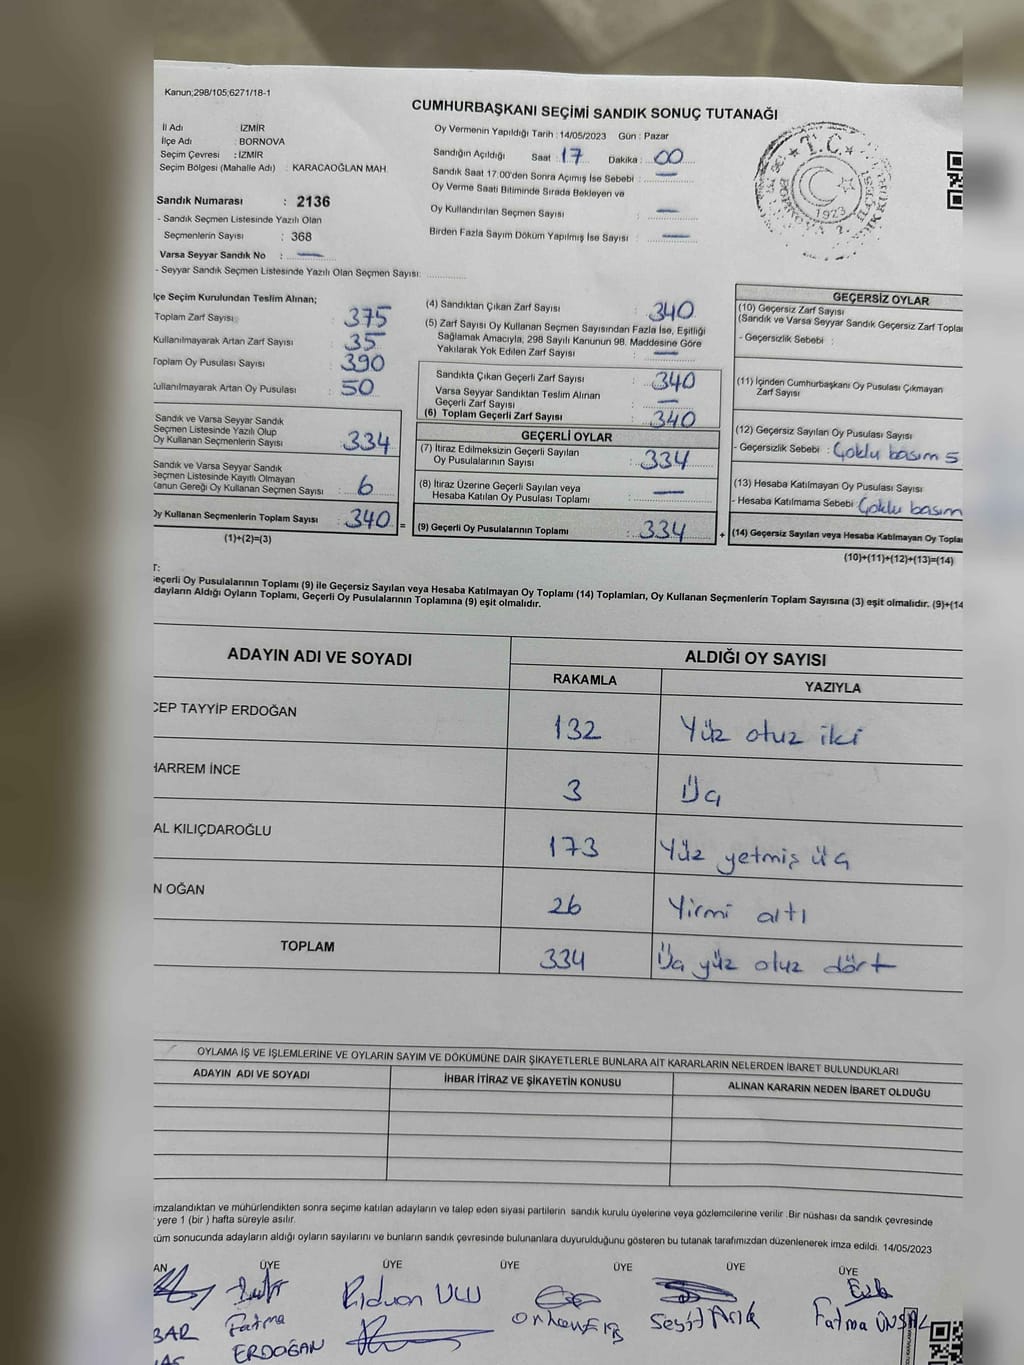 Kanun;298/105;6271/18-1
CUMHURBAŞKANI SEÇİMİ SANDIK SONUÇ TUTANAĞI
İl Adı İZMİR
İlçe Adı : BORNOVA
Seçim Çevresi : İZMİR
Seçim Bölgesi (Mahalle Adı) : KARACAOĞLAN MAH.
Sandık Numarası : 2136
- Sandık Seçmen Listesinde Yazılı Olan
Seçmenlerin Sayısı : 368
Varsa Seyyar Sandık No : —
- Seyyar Sandık Seçmen Listesinde Yazılı Olan Seçmen Sayısı:
Oy Vermenin Yapıldığı Tarih : 14/05/2023 Gün : Pazar
Sandığın Açıldığı Saat : 17 Dakika : 00
Sandık Saat 17.00'den Sonra Açımış İse Sebebi : —
Oy Verme Saati Bitiminde Sırada Bekleyen ve
Oy Kullandırılan Seçmen Sayısı : —
Birden Fazla Sayım Döküm Yapılmış İse Sayısı : —
T.C.
1923
lçe Seçim Kurulundan Teslim Alınan;
Toplam Zarf Sayısı : 375
Kullanılmayarak Artan Zarf Sayısı : 35
Toplam Oy Pusulası Sayısı : 390
Kullanılmayarak Artan Oy Pusulası : 50
Sandık ve Varsa Seyyar Sandık
Seçmen Listesinde Yazılı Olup
Oy Kullanan Seçmenlerin Sayısı : 334
Sandık ve Varsa Seyyar Sandık
Seçmen Listesinde Kayıtlı Olmayan
Kanun Gereği Oy Kullanan Seçmen Sayısı : 6
Oy Kullanan Seçmenlerin Toplam Sayısı : 340 =
(1)+(2)=(3)
(4) Sandıktan Çıkan Zarf Sayısı : 340
(5) Zarf Sayısı Oy Kullanan Seçmen Sayısından Fazla İse, Eşitliği
Sağlamak Amacıyla, 298 Sayılı Kanunun 98. Maddesine Göre
Yakılarak Yok Edilen Zarf Sayısı : —
Sandıkta Çıkan Geçerli Zarf Sayısı : 340
Varsa Seyyar Sandıktan Teslim Alınan
Geçerli Zarf Sayısı : —
(6) Toplam Geçerli Zarf Sayısı : 340
GEÇERLİ OYLAR
(7) İtiraz Edilmeksizin Geçerli Sayılan
Oy Pusulalarının Sayısı : 334
(8) İtiraz Üzerine Geçerli Sayılan veya
Hesaba Katılan Oy Pusulası Toplamı : —
(9) Geçerli Oy Pusulalarının Toplamı : 334 +
GEÇERSİZ OYLAR
(10) Geçersiz Zarf Sayısı
(Sandık ve Varsa Seyyar Sandık Geçersiz Zarf Toplam
- Geçersizlik Sebebi :
(11) İçinden Cumhurbaşkanı Oy Pusulası Çıkmayan
Zarf Sayısı
(12) Geçersiz Sayılan Oy Pusulası Sayısı
- Geçersizlik Sebebi : Çoklu basım 5
(13) Hesaba Katılmayan Oy Pusulası Sayısı
- Hesaba Katılmama Sebebi : Çoklu basım
(14) Geçersiz Sayılan veya Hesaba Katılmayan Oy Topla
(10)+(11)+(12)+(13)=(14)
T:
eçerli Oy Pusulalarının Toplamı (9) ile Geçersiz Sayılan veya Hesaba Katılmayan Oy Toplamı (14) Toplamları, Oy Kullanan Seçmenlerin Toplam Sayısına (3) eşit olmalıdır. (9)+(14
dayların Aldığı Oyların Toplamı, Geçerli Oy Pusulalarının Toplamına (9) eşit olmalıdır.
ADAYIN ADI VE SOYADI ALDIĞI OY SAYISI
RAKAMLA YAZIYLA
CEP TAYYİP ERDOĞAN 132 Yüz otuz iki
HARREM İNCE 3 Üç
AL KILIÇDAROĞLU 173 Yüz yetmiş üç
N OĞAN 26 Yirmi altı
TOPLAM 334 Üç yüz otuz dört
OYLAMA İŞ VE İŞLEMLERİNE VE OYLARIN SAYIM VE DÖKÜMÜNE DAİR ŞİKAYETLERLE BUNLARA AİT KARARLARIN NELERDEN İBARET BULUNDUKLARI
ADAYIN ADI VE SOYADI İHBAR İTİRAZ VE ŞİKAYETİN KONUSU ALINAN KARARIN NEDEN İBARET OLDUĞU
imzalandıktan ve mühürlendikten sonra seçime katılan adayların ve talep eden siyasi partilerin sandık kurulu üyelerine veya gözlemcilerine verilir .Bir nüshası da sandık çevresinde
yere 1 (bir ) hafta süreyle asılır.
küm sonucunda adayların aldığı oyların sayılarını ve bunların sandık çevresinde bulunanlara duyurulduğunu gösteren bu tutanak tarafımızdan düzenlenerek imza edildi. 14/05/2023
AN ÜYE ÜYE ÜYE ÜYE ÜYE ÜYE
Rıdvan ULU
Fatma
ERDOĞAN
Seyit Arık
Fatma ÜNSAL